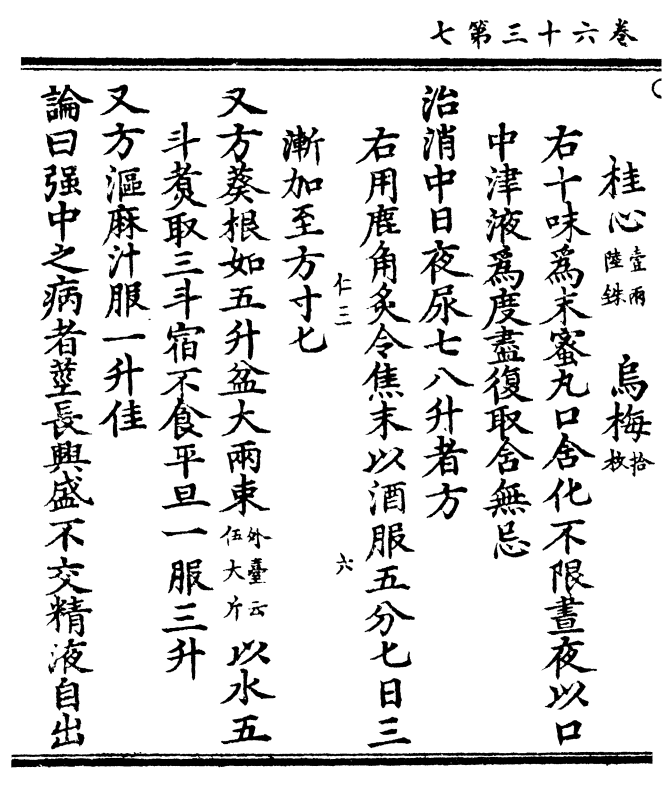 卷六十三第七
桂心壹兩陸銖 烏梅拾枚
右十味爲末蜜丸口含化不限晝夜以口
中津液爲度盡復取含無忌
治消中日夜尿七八升者方
右用鹿角炙令焦末以酒服五分匕日三
仁二 六
漸加至方寸匕
又方葵根如五升盆大兩束外臺云伍大斤以水五
斗煑取三斗宿不食平旦一服三升
又方漚麻汁服一升佳
論曰强中之病者莖長興盛不交精液自出